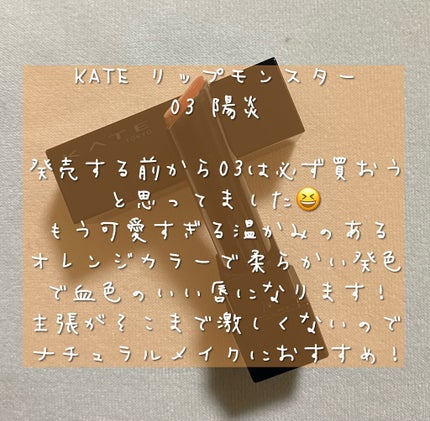 KATE リップモンスター
03 陽炎
KATE
TOKYO
発売する前から03は必ず買おう
と思ってました😆
もう可愛すぎる温かみのある
オレンジカラーで柔らかい発色
で血色のいい唇になります!
主張がそこまで激しくないので
ナチュラルメイクにおすすめ!